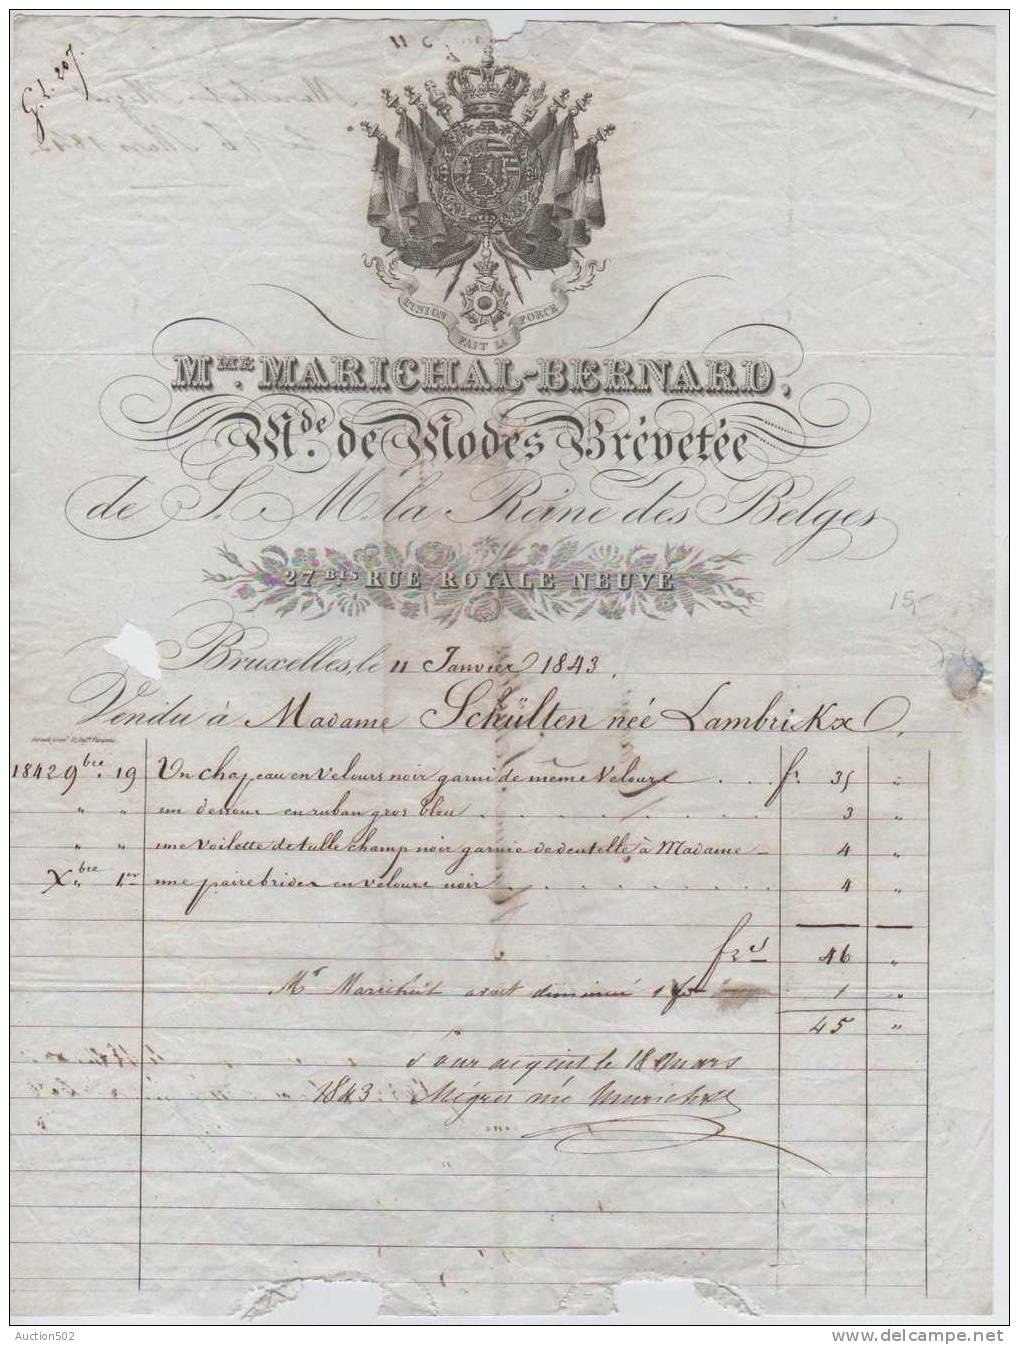 G. L. 207.
L'UNION FAIT LA FORCE
Mme. MARICHAL-BERNARD,
Mde. de Modes Brévetée
de S. M. la Reine des Belges
27 Bis RUE ROYALE NEUVE
15,-
Bruxelles, le 11 Janvier 1843,
Vendu à Madame Schülten née Lambrickx,
1842 9bre. 19 Un chapeau en velours noir garni de même Velours . . . fr. 35 "
" " un dessous en ruban gros bleu . . . . . . . . . 3 "
" " une voilette de tulle champ noir garnie de dentelle à Madame 4 "
Xbre 1er une paire brides en velours noir . . . . . . . . . 4 "
frs 46 "
Mr Marichal avait diminué 1 1 "
45 "
Pour acquit le 18 mars
1843 Mégret née Marichal
Auction502
www.delcampe.net